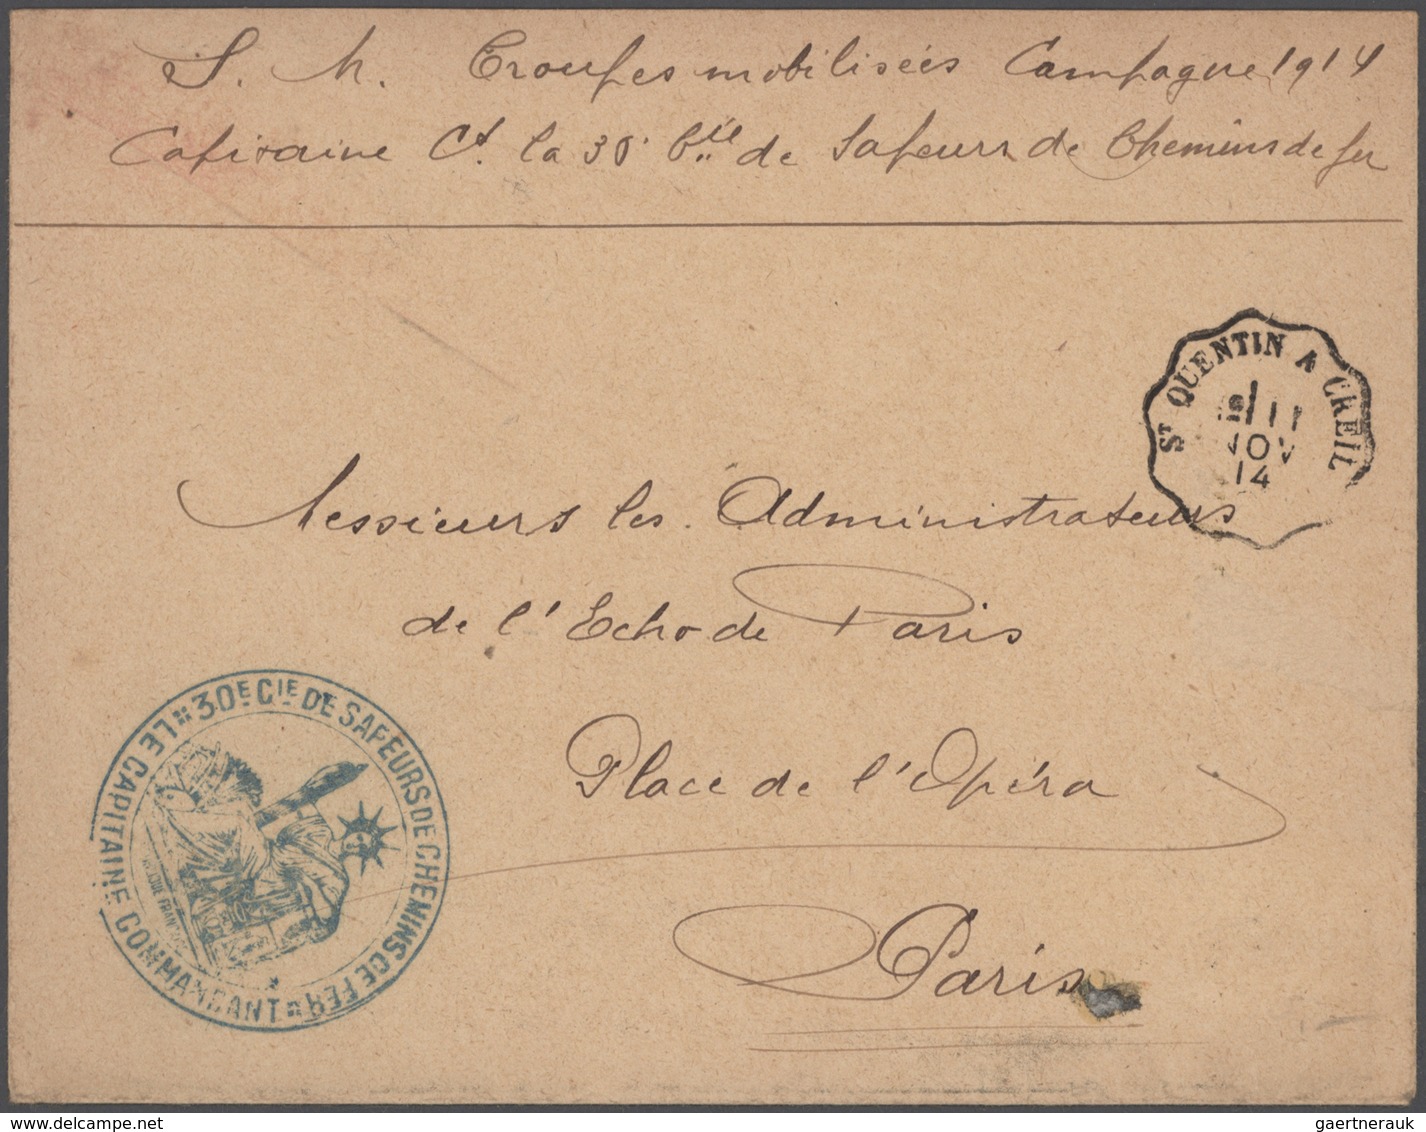 S. M. Troupes mobilisées Campagne 1914
Capitaine Ct. la 30e Cie de Sapeurs de Chemins de fer
ST QUENTIN A CREIL
11
NOV
14
Messieurs les Administrateurs
de l'Echo de Paris
Place de l'Opéra
Paris
LE CAPITAINE COMMANDANT
30E CIE DE SAPEURS DE CHEMINS DE FER
gaertnerauk / delcampe.net